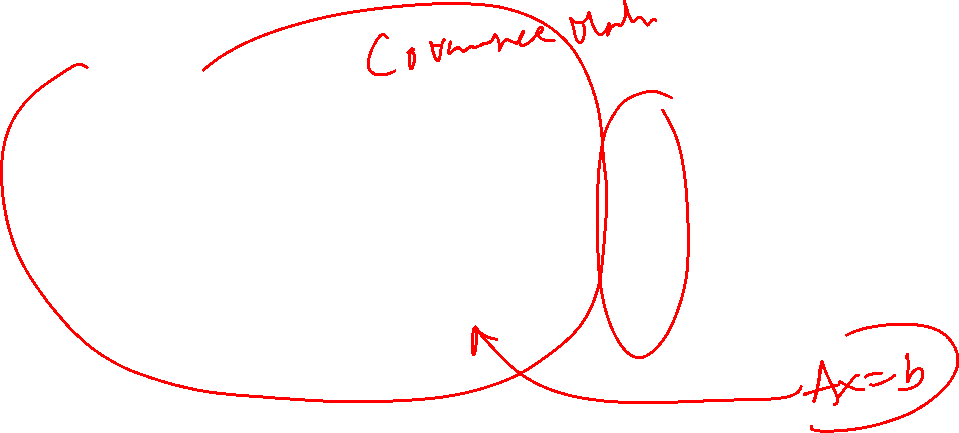 Covariance Matrix
Ax=b